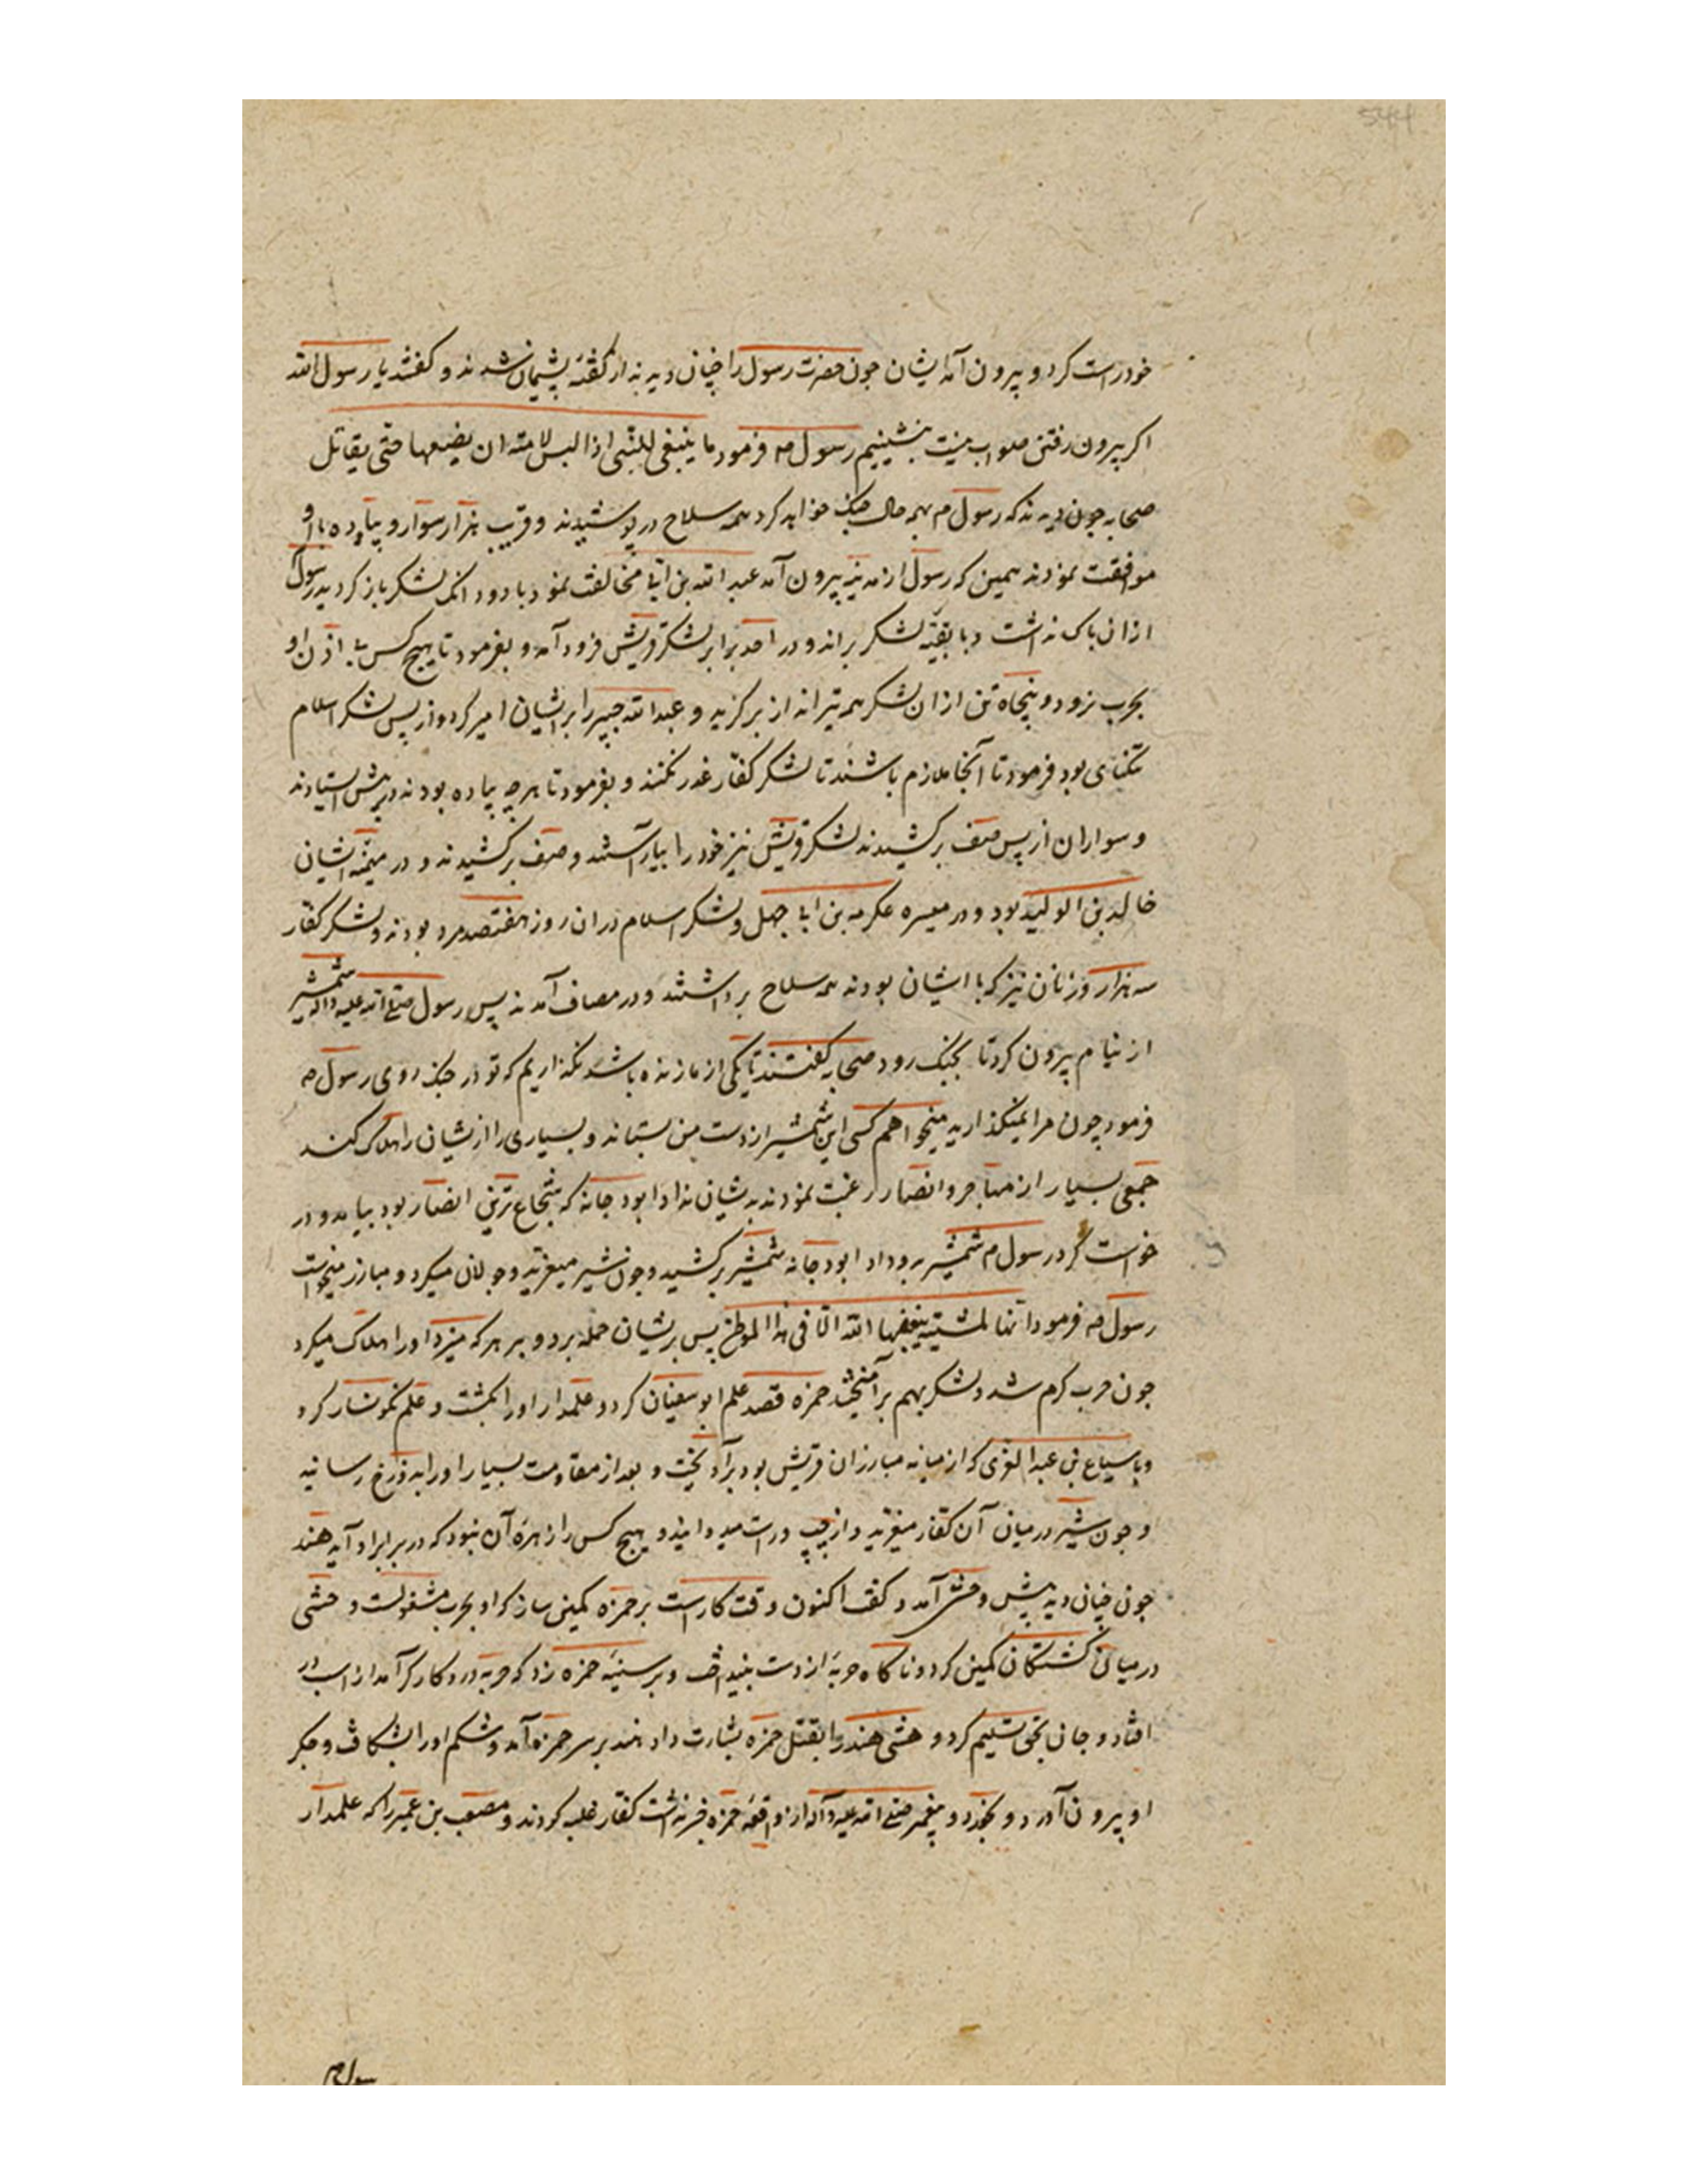 خود راست کرد و بیرون آمد ایشان جون حضرت رسول را چنان دیدند از گفته پشیمان شدند و گفتند یا رسول الله
اکر بیرون رفتن صواب نیست بنشینیم رسول صم فرمود ما ینبغی للنبی اذا لبس لامته ان یضعها حتی یقاتل
صحابه چون دیدند که رسول م بهمه حال جنک خواهد کرد همه سلاح در پوشیدند و قریب هزار سوار و پیاده با او
موافقت نمودند همین که رسول از مدینه بیرون آمد عبد الله بن ابی مخالفت نمود با دو دانک لشکر باز کردید رسول
ازان باک نداشت و با بقیه لشکر براند و در احد برابر لشکر قریش فرود آمد و بفرمود تا هیچ کس بی اذن او
بحرب نرود و پنجاه تن ازان لشکر همه تیرانداز برکزید و عبد الله جبیر را بر ایشان امیر کرد و از پس لشکر اسلام
تنکنای بود فرمود تا آنجا ملازم باشند تا لشکر کفار غدر نکنند و بفرمود تا هر چه پیاده بودند در پیش استادند
و سواران از پس صف برکشیدند لشکر قریش نیز خود را بیاراستند و صف برکشیدند و در میمنه ایشان
خالد بن الولید بود و در میسره عکرمه بن ابی جهل و لشکر اسلام دران روز هفتصد مرد بودند و لشکر کفار
سه هزار و زنان نیز که با ایشان بودند همه سلاح برداشتند و در مصاف آمدند پس رسول صلی الله علیه و اله شمشیر
از نیام بیرون کرد تا بجنک رود صحابه کفتند تا یکی از ما زنده باشد نکذاریم که تو در جنک روی رسول صم
فرمود چون مرا نمیکذارید میخواهم کسی این شمشیر از دست من بستاند و بسیاری را از یشان را هلاک کند
جمعی بسیار از مهاجر و انصار رغبت نمودند بدیشان نداد ابو دجانه که شجاع ترین انصار بود بیامد و در
خواست کرد رسول م شمشیر بدو داد ابو دجانه شمشیر برکشید و چون شیر میغرید و جولان میکرد و مبارز میخواست
رسول صم فرمود انها لمشیة یبغضها الله الا فی هذا الموطن پس بریشان حمله برد و بر هر که میزد او را هلاک میکرد
جون حرب کرم شد و لشکر بهم برآمیخت حمزه قصد علم ابو سفیان کرد و علمدار او را بکشت و علم نکونسار کرد
و با سباع بن عبد العزی که از میانه مبارزان قریش بود برآویخت و بعد از مقاومت بسیار او را بدوزخ رسانید
و جون شیر در میان آن کفار میغرید و از چپ و راست میدوانید و هیچ کس را زهره آن نبود که در برابر او آید هند
جون چنان دید پیش وحشی آمد و کفت اکنون وقت کارست بر حمزه کمینی ساز که او بحرب مشغولست وحشی
در میان کشتکان کمین کرد و ناکاه حربه از دست بینداخت و بر سینه حمزه زد که حربه درو کارکر آمد از اسب در
افتاد و جان بحق تسلیم کرد وحشی هند را بقتل حمزه بشارت داد هند بر سر حمزه آمد و شکم او را بشکافت و جکر
او بیرون آورد و بخورد و پیغمبر صلی الله علیه و آله از واقعه حمزه خبر نداشت کفار غلبه کردند و مصعب بن عمیر را که علمدار